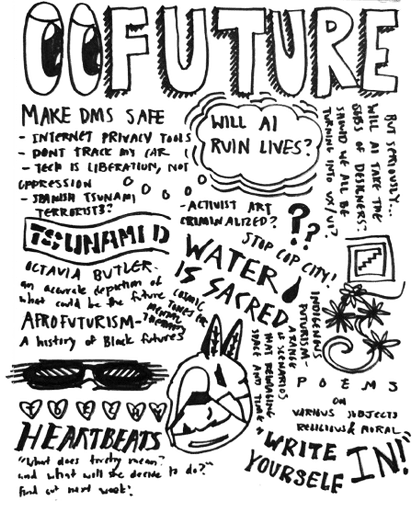 FUTURE
MAKE DMS SAFE
- INTERNET PRIVACY TOOLS
- DONT TRACK MY CAR
- TECH IS LIBERATION, NOT
OPPRESSION
- SPANISH TSUNAMI
TERRORISTS?
WILL AI
RUIN LIVES?
BUT SERIOUSLY...
WILL AI TAKE THE
JOBS OF DESIGNERS?
SHOULD WE ALL BE
TURNING INTO UX/UI?
-ACTIVIST ART
CRIMINALIZED?
??
STOP COP CITY!
TSUNAMI
WATER
IS SACRED
OCTAVIA BUTLER-
an accurate depiction of
what could be the future
COSMIC
TONES FOR
MENTAL
THERAPY
AFROFUTURISM-
A history of Black futures
INDIGENOUS
FUTURISM-
A RANGE OF
SCENARIOS
THAT REIMAGINE
SPACE AND TIME
POEMS
ON
VARIOUS SUBJECTS
RELIGIOUS & MORAL
HEARTBEATS
"What does mean?
and what will she decide to do?"
Find out next week!
"WRITE
YOURSELF
IN!"